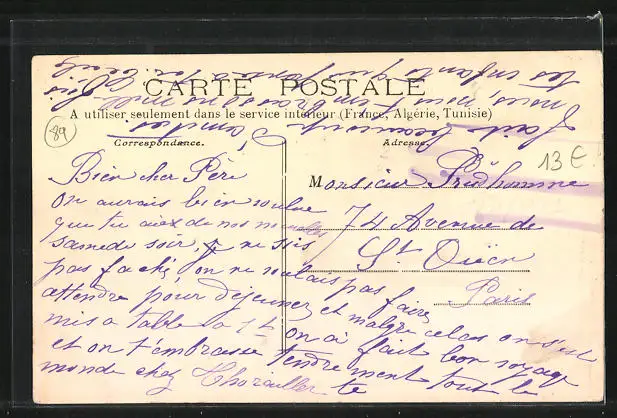 CARTE POSTALE
A utiliser seulement dans le service intérieur (France, Algérie, Tunisie)
Correspondance.
Adresse.
89
13 €
Bien cher Père
on aurais bien voulue
que tu aiex de nos nouvelles
samedi soir, je ne sais
pas fachée on ne voulais pas faire
attendre pour déjeuner et malgré cela on s'est
mis a table a 1 h on a fait bon voyage
et on t'embrasse tendrement tout le
monde chez Thorailler te
Monsieur Prudhomme
74 Avenue de
St Ouen
Paris
fait beaucoup
nous t'embrassons
les enfants